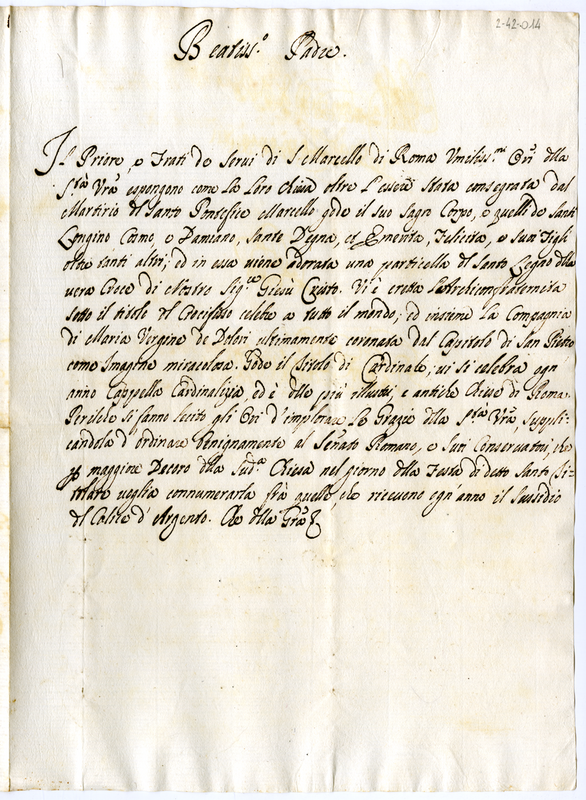 2-42-014
Beatiss.o Padre.
Il Priore, e Frati de Servi di S Marcello di Roma Umiliss.mi Ori della
S.tà Vrã espongono come La Loro Chiesa oltre L'essere stata consegrata dal
Martirio del Santo Pontefice Marcello gode il suo Sagro Corpo, e quelli de Santi
Longino Cosmo, e Damiano, Sante Degna, et Emerita, Felicita, e suoi Figli
oltre tanti altri; ed in essa viene adorata una particella del Santo Legno della
vera Croce di Nostro Sig.re Giesù Cristo. Vi è eretta L'Archiconfraternita
sotto il titolo del Crocifisso celebre a tutto il mondo; ed insieme La Compagnia
di Maria Vergine de Dolori ultimamente coronata dal Capitolo di San Pietro,
come Imagine miracolosa. Gode il titolo di Cardinale; vi si celebra ogn
anno Cappella Cardinalizia, ed è delle più illustri, e antiche Chiese di Roma.
Perilche si fanno lecito gli Ori d'implorare La Grazia della S.tà Vrã, suppli-
candola d'ordinare benignamente al Senato Romano, e suoi Conservatori, che
p maggiore Decoro della Sud.a Chiesa nel giorno della Festa di detto Santo Ti-
tolare voglia connumerarla frà quelle, che ricevono ogn'anno il Sussidio
del Calice d'Argento. Che della Grã